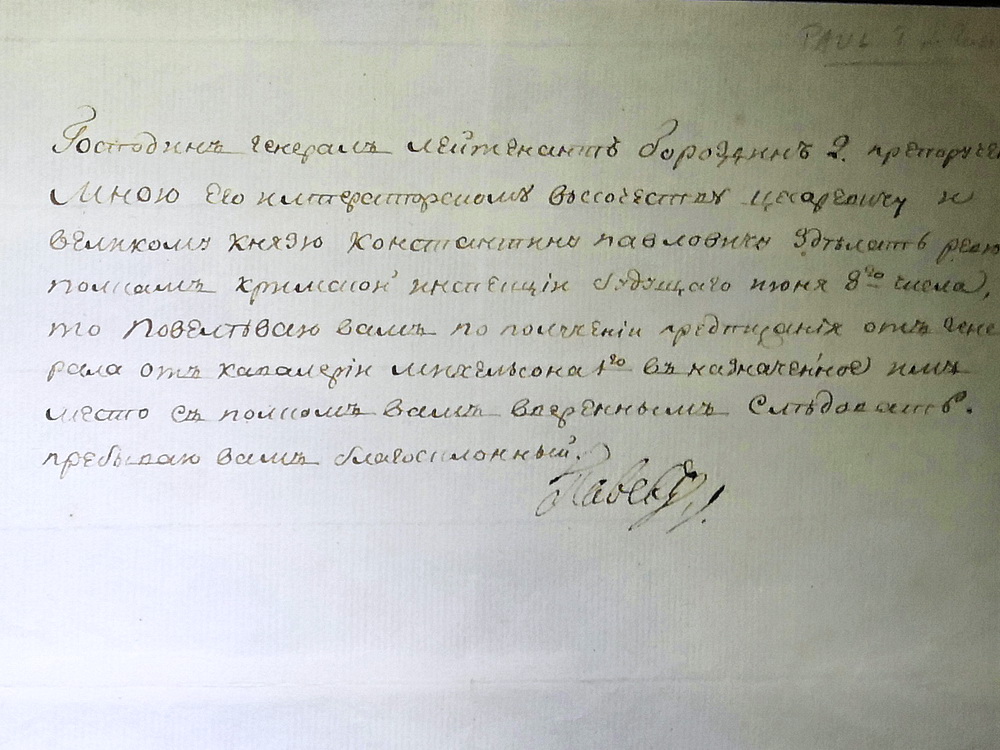 PAUL I
Господинъ генералъ лейтенантъ Бороздинъ 2. препоруче
Мною Его императорскому высочеству цесаревичу и
великому князю Константину павловичу здѣлать
полкамъ крымской инспекціи будущаго июня 8го числа,
то Повелѣваю вамъ по полученіи предписанія отъ гене
рала отъ кавалеріи михельсона 1го въ назначенное имъ
место съ полкомъ вамъ ввереннымъ Слѣдовать.
пребываю вамъ благосклонный.
Павелъ